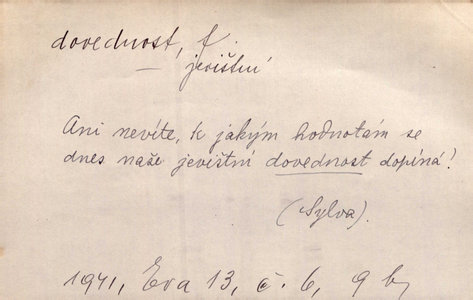 dovednost, f.
— jevištní
Ani nevíte, k jakým hodnotám se
dnes naše jevištní dovednost dopíná!
(Sylva).
1941, Eva 13, č. 6, 9 b